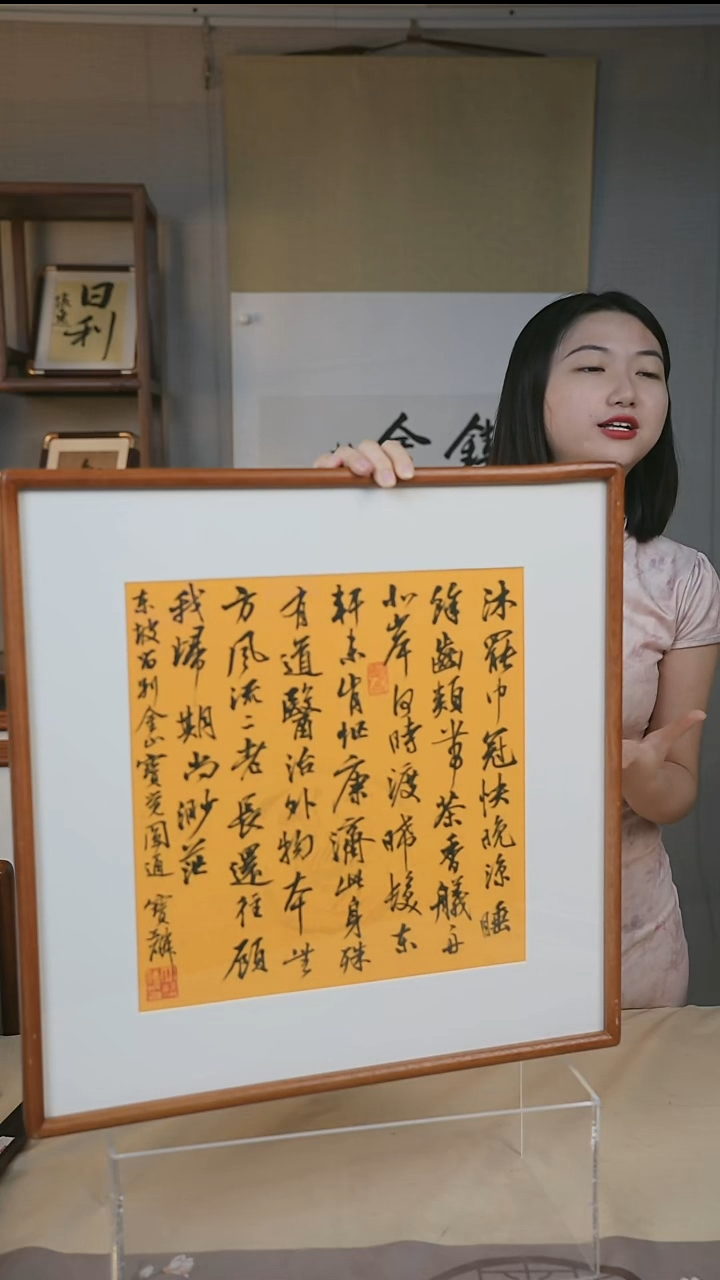 沐罷巾冠快晚涼睡
餘齒類帶茶香艤舟
北岸何時渡晞髮东
軒未肯忙康濟此身殊
有道醫治外物本無
方風流二老長還往顧
我歸期尚渺茫
东坡留别金山寶覺圓通 寶麟
日利